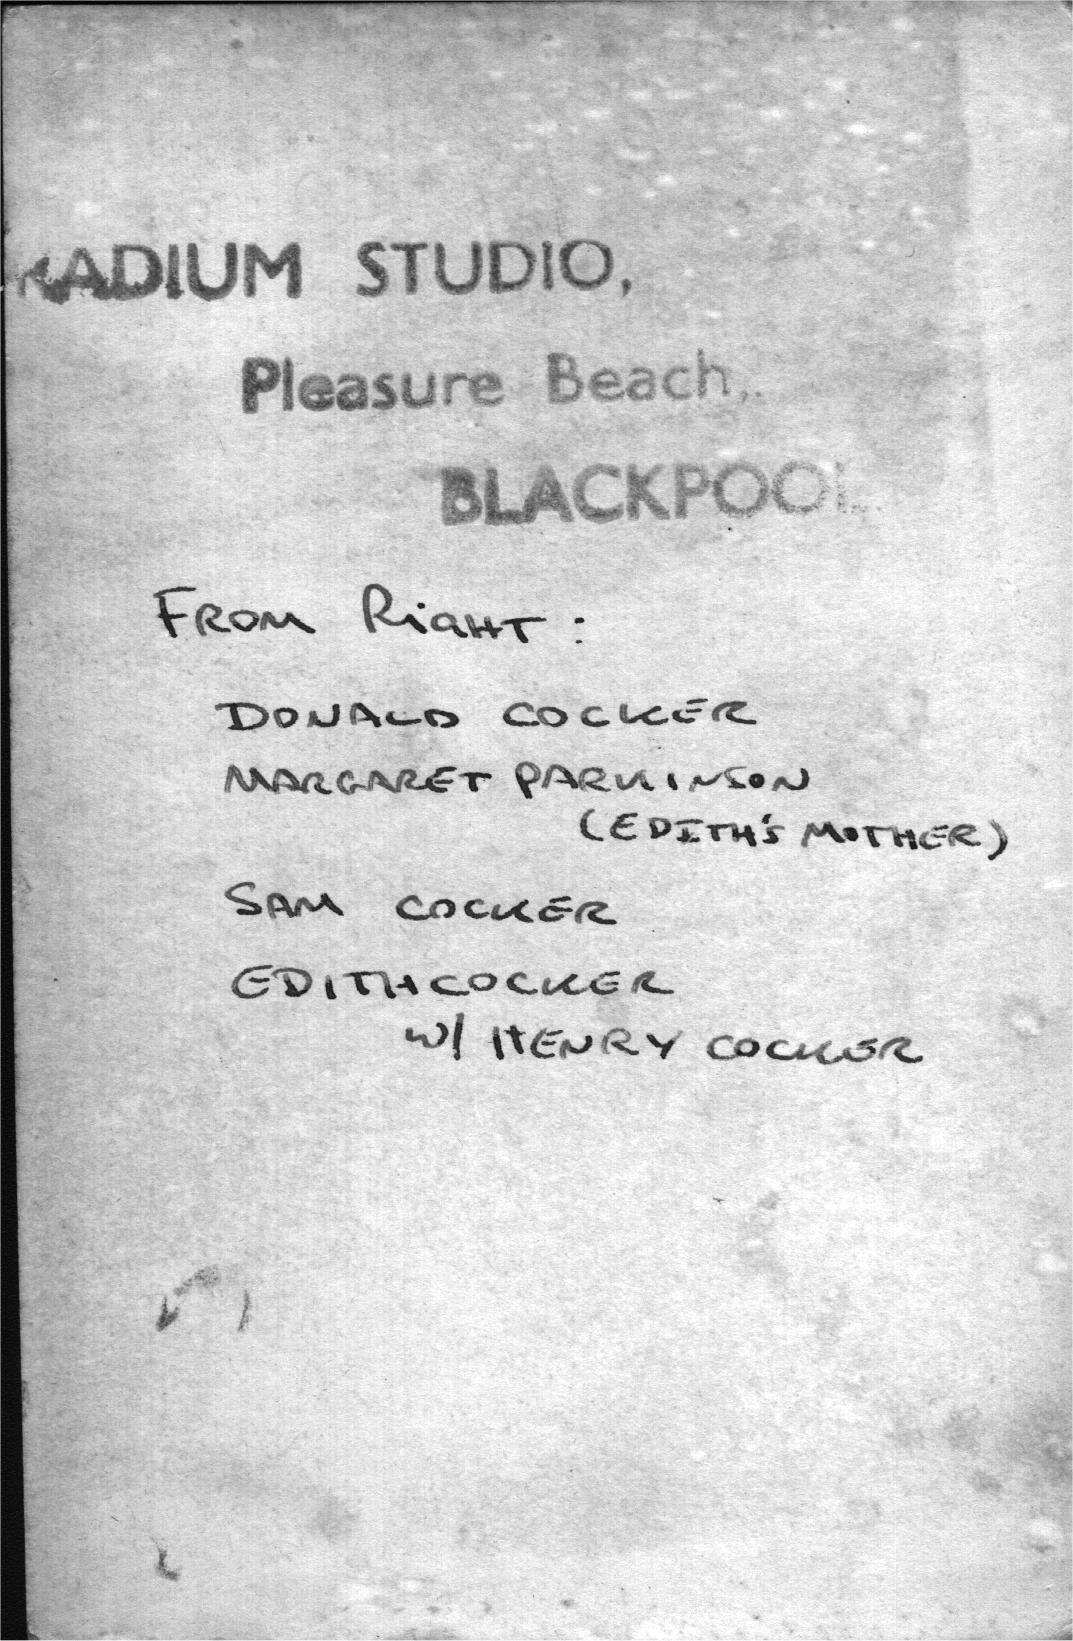 RADIUM STUDIO,
Pleasure Beach,
BLACKPOOL.
FROM RIGHT:
DONALD COCKER
MARGARET PARKINSON
(EDITH'S MOTHER)
SAM COCKER
EDITH COCKER
W/ HENRY COCKER